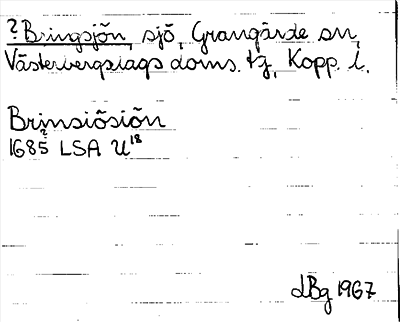 ?Bringsjön, sjö, Grangärde sn,
Västerbergslags doms. tg, Kopp. l.
Brinsiösiön
?
1685 LSA U18
LBg 1967